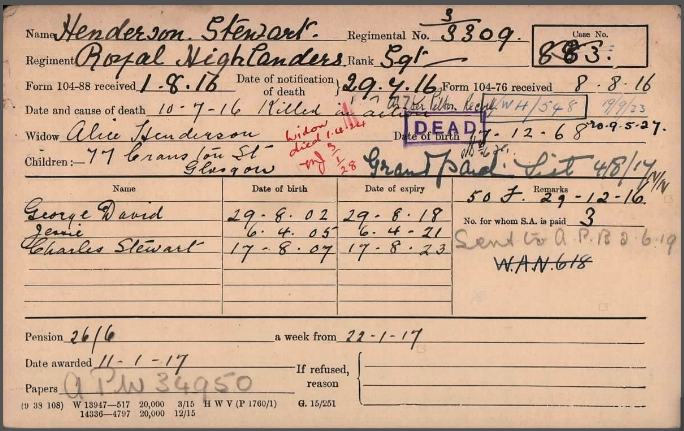 3
Name Henderson. Stewart. Regimental No. 3309. Case No.
Regiment Royal Highlanders Rank Sgt 883.
Form 104-88 received 1-8-16 Date of notification of death. } 29.7.16 Form 104-76 received 8-8-16
W4/548 19/9/23
Date and cause of death 10-7-16 Killed in action
Widow Alice Henderson Date of birth 17-12-68
DEAD
Widow died
Children:— 77 Cranston St
Glasgow
Grand paid List 4/8/17
Name Date of birth Date of expiry Remarks
50 F. 29-12-16.
George David 29-8.02 29-8.18
No. for whom S.A. is paid 3
Jessie 6.4.05 6-4-21
Send to A.P.B 2-6-19
Charles Stewart 17-8.07 17-8-23
W.A.N. 618
Pension 26/6 a week from 22-1-17
Date awarded 11-1-17
If refused, reason
Papers APW 34950
(9 38 108) W 13947—517 20,000 3/15 H W V (P 1760/1) G. 15/251
14336—4797 20,000 12/15